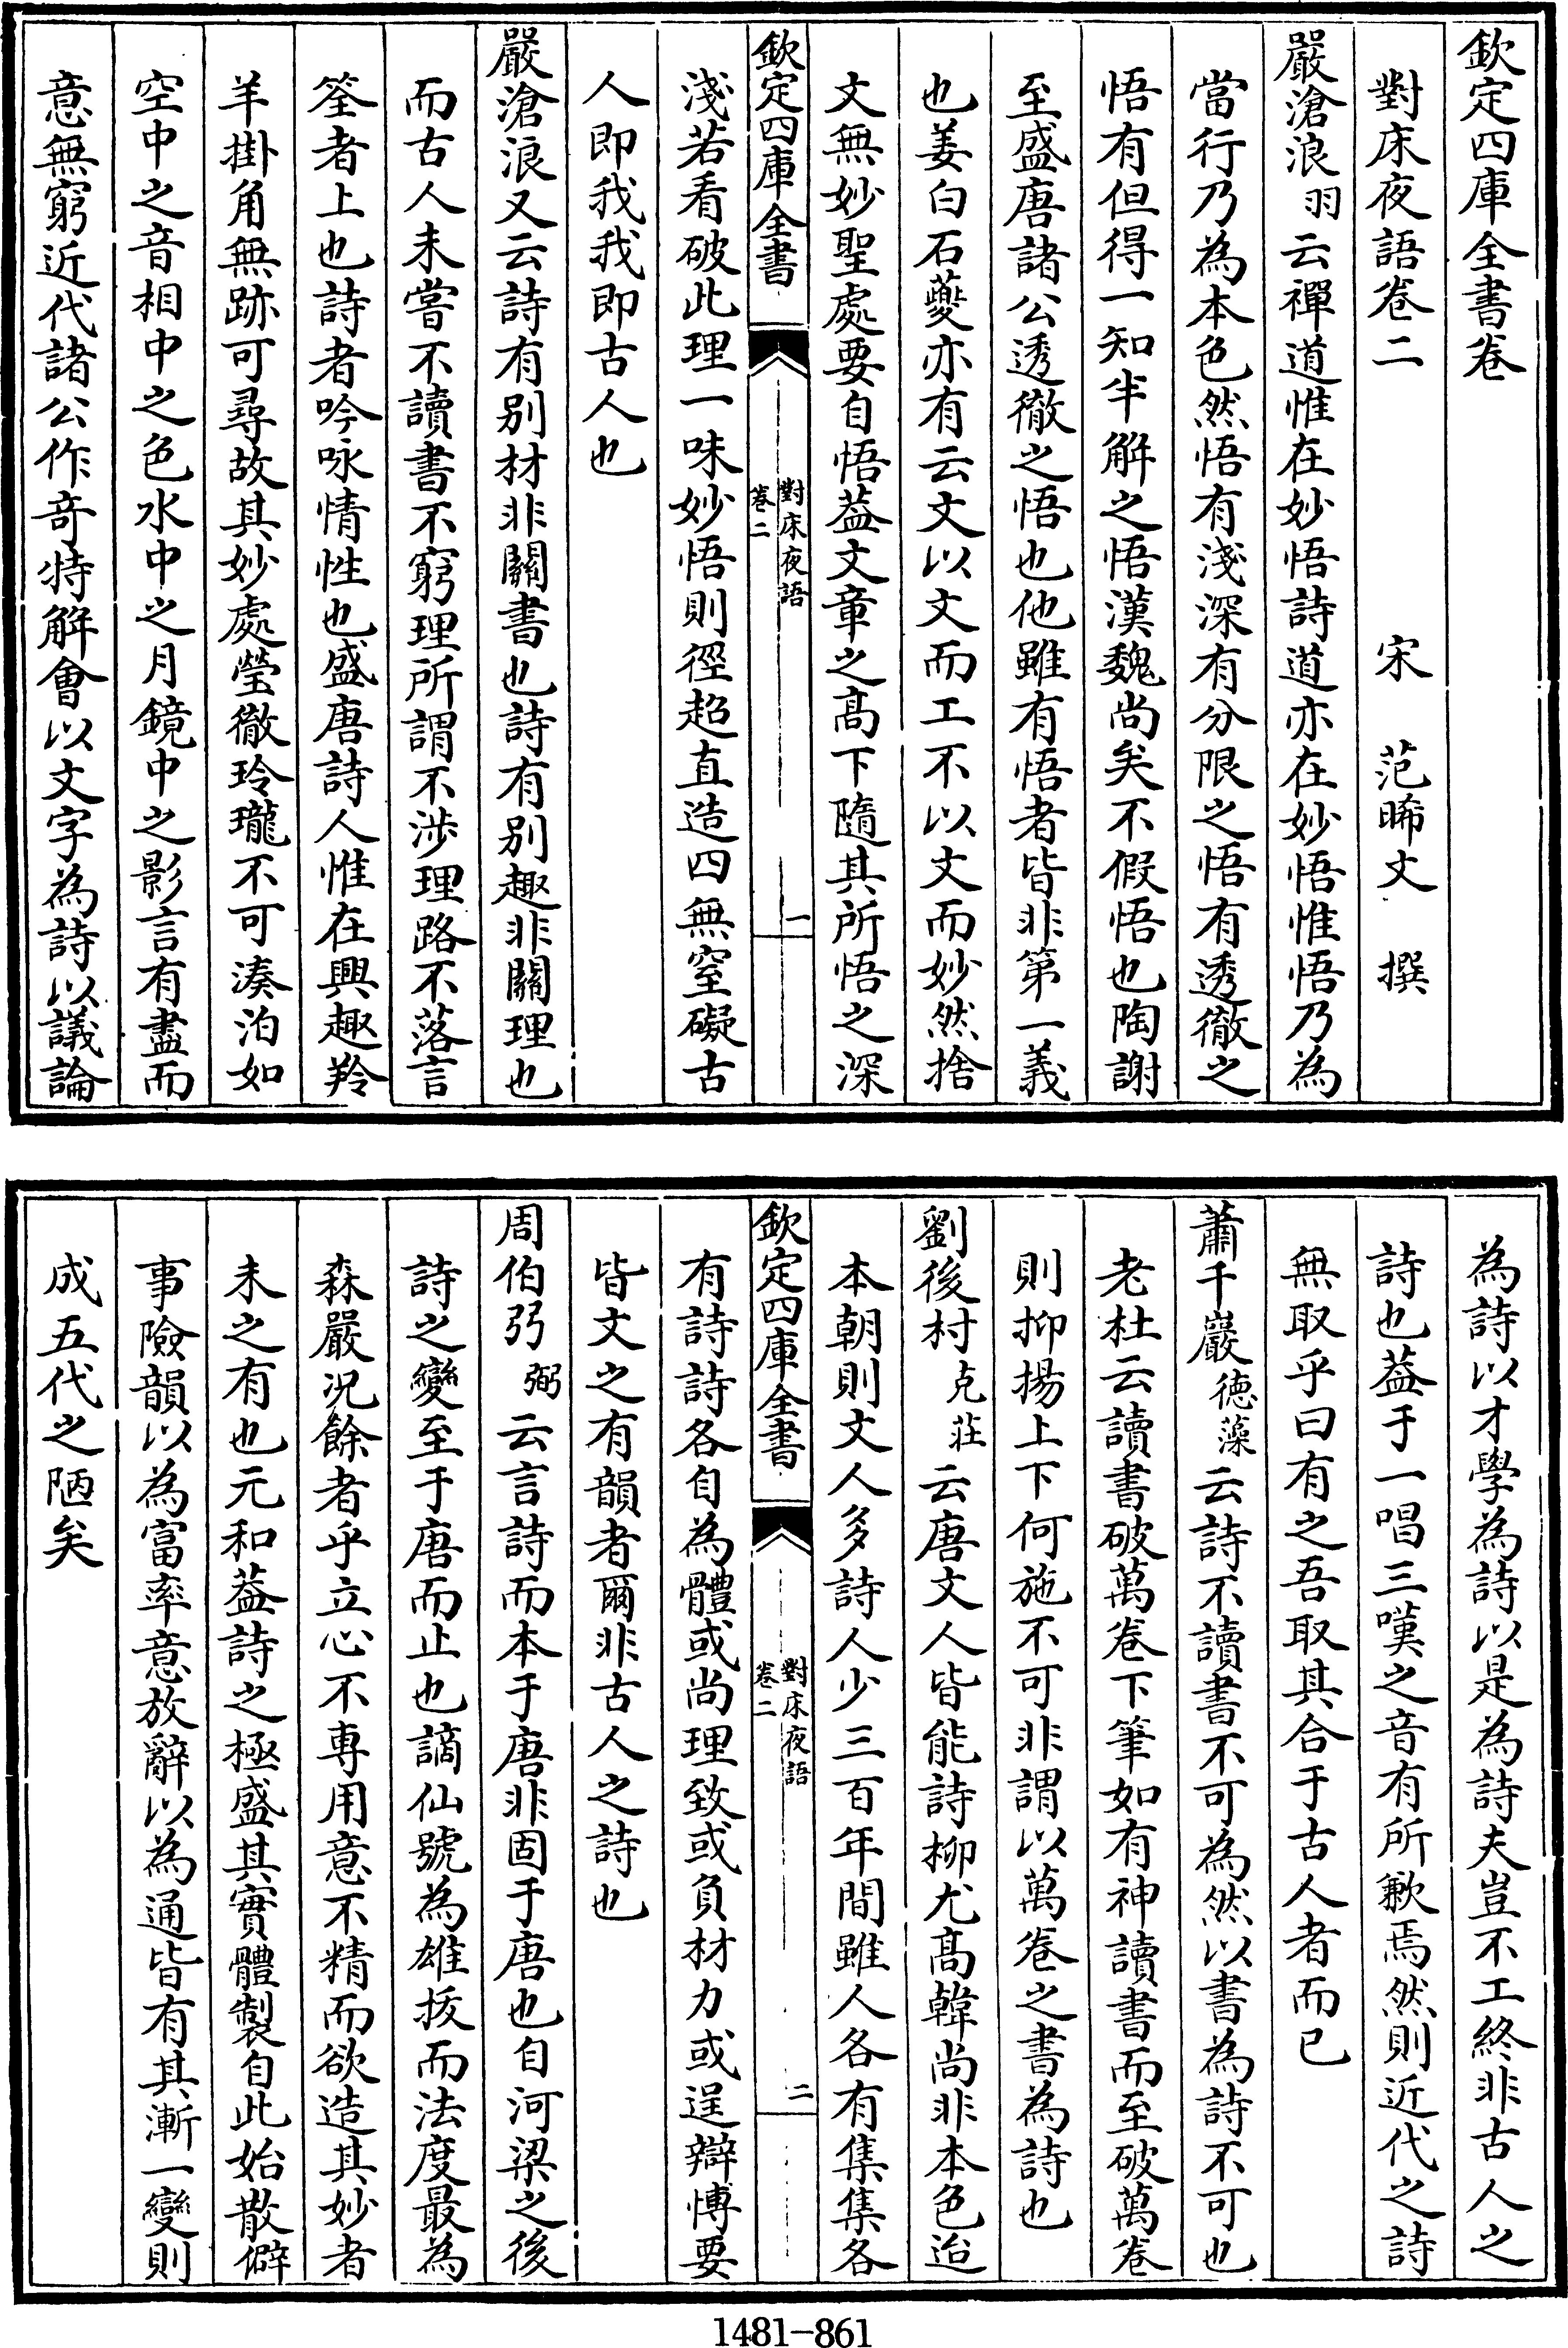 欽定四庫全書卷
對床夜語卷二　宋　范晞文　撰
嚴滄浪羽云禪道惟在妙悟詩道亦在妙悟惟悟乃為
當行乃為本色然悟有淺深有分限之悟有透徹之
悟有但得一知半解之悟漢魏尚矣不假悟也陶謝
至盛唐諸公透徹之悟也他雖有悟者皆非第一義
也姜白石夔亦有云文以文而工不以文而妙然捨
文無妙聖處要自悟葢文章之髙下隨其所悟之深
欽定四庫全書
對床夜語
卷二
一
淺若看破此理一味妙悟則徑超直造四無窒礙古
人即我我即古人也
嚴滄浪又云詩有别材非關書也詩有别趣非關理也
而古人未嘗不讀書不窮理所謂不涉理路不落言
筌者上也詩者吟咏情性也盛唐詩人惟在興趣羚
羊掛角無跡可尋故其妙處瑩徹玲瓏不可湊泊如
空中之音相中之色水中之月鏡中之影言有盡而
意無窮近代諸公作奇特解會以文字為詩以議論
為詩以才學為詩以是為詩夫豈不工終非古人之
詩也葢于一唱三嘆之音有所歉焉然則近代之詩
無取乎曰有之吾取其合于古人者而已
蕭千巖德藻云詩不讀書不可為然以書為詩不可也
老杜云讀書破萬卷下筆如有神讀書而至破萬卷
則抑揚上下何施不可非謂以萬卷之書為詩也
劉後村克莊云唐文人皆能詩柳尤髙韓尚非本色迨
本朝則文人多詩人少三百年間雖人各有集集各
欽定四庫全書
對床夜語
卷二
二
有詩詩各自為體或尚理致或負材力或逞辯博要
皆文之有韻者爾非古人之詩也
周伯弜弼云言詩而本于唐非固于唐也自河梁之後
詩之變至于唐而止也謫仙號為雄㧞而法度最為
森嚴况餘者乎立心不専用意不精而欲造其妙者
未之有也元和葢詩之極盛其實體製自此始散僻
事險韻以為富率意放辭以為通皆有其漸一變則
成五代之陋矣
1481-861